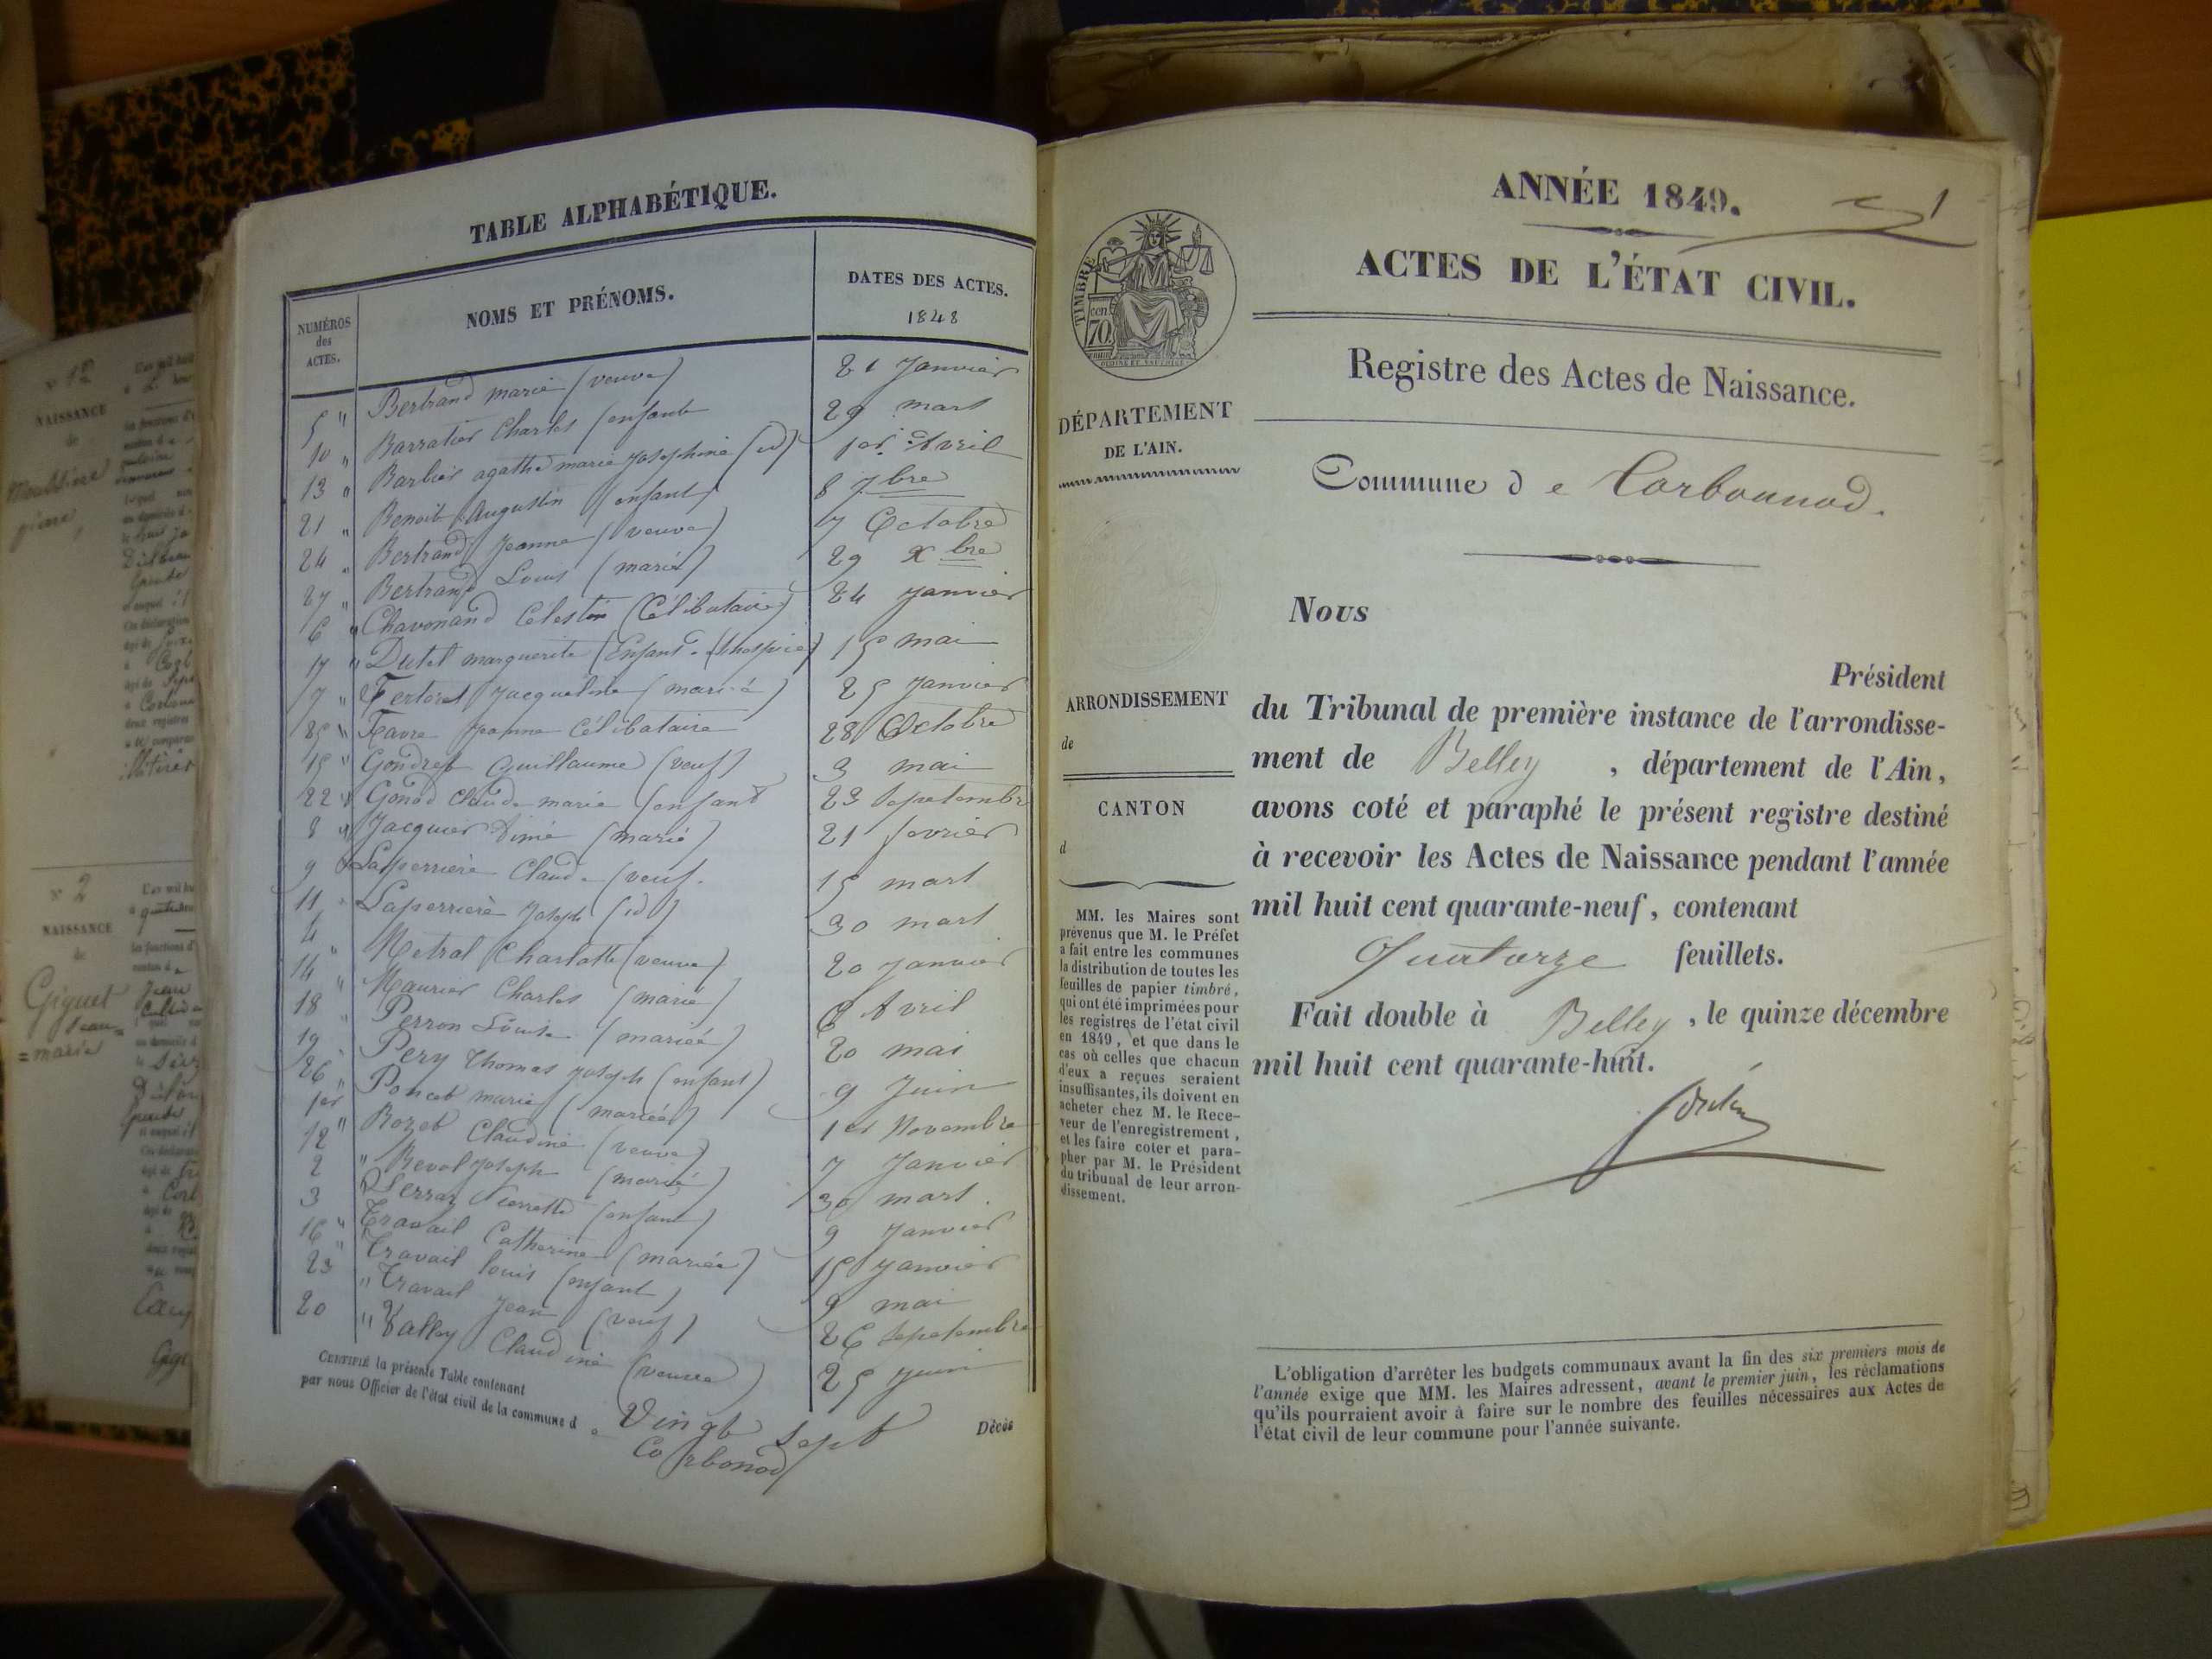 TABLE ALPHABÉTIQUE.
NUMÉROS des ACTES.
NOMS ET PRÉNOMS.
DATES DES ACTES.
1848
5 " Bertrand marie (veuve) 21 Janvier
10 " Barratier Charles (enfant 29 mars
13 " Barbier agathe marie josephine (id) 1er Avril
21 " Benoit Augustin (enfant) 8 7bre
24 " Bertrand Jeanne (veuve) 7 Octobre
27 " Bertrand Louis (marié) 29 Xbre
6 " Chavonand Célestin (Célibataire) 24 janvier
17 " Dutel marguerite (Enfant hospice) 15 mai
7 " Jacqueline (marié) 25 Janvier
25 " Favre Jeanne Célibataire 28 Octobre
15 " Gondret Guillaume (veuf) 3 mai
22 " Gonod Claude marie (enfant 23 Sepetembre
8 " Jacquier Aimé (marié) 21 fevrier
9 Laperrière Claude (veuf. 15 mars
11 " Laperriere Joseph (id) 30 mars
4 " Metral Charlotte (veuve) 20 janvier
14 " Maurier Charles (marié) 6 Avril
18 " Perron Louise (mariée) 20 mai
19 Pery Thomas joseph (enfant) 9 Juin
26 " Poncet marie (mariée) 1er Novembre
1er Rozet Claudine (veuve) 7 Janvier
12 " Revol joseph (marié) 30 mars
2 " Serraz Pierrette (enfant) 9 Janvier
3 Travail Catherine (mariée) 15 janvier
16 " Travail louis (enfant) 9 mai
23 " Travail Jean (veuf) 26 Sepetembre
20 " Valley Claudine (veuve) 25 juin
CERTIFIÉ la présente Table contenant Vingt Sept Décès
par nous Officier de l'état civil de la commune de Corbonod
ANNÉE 1849.
1
ACTES DE L'ÉTAT CIVIL.
Registre des Actes de Naissance.
TIMBRE
70
cen
DÉPARTEMENT
DE L'AIN.
Commune de Corbonnod.
ARRONDISSEMENT
de
CANTON
d
MM. les Maires sont
prévenus que M. le Préfet
a fait entre les communes
la distribution de toutes les
feuilles de papier timbré,
qui ont été imprimées pour
les registres de l'état civil
en 1849, et que dans le
cas où celles que chacun
d'eux a reçues seraient
insuffisantes, ils doivent en
acheter chez M. le Rece-
veur de l'enregistrement,
et les faire coter et para-
pher par M. le Président
du tribunal de leur arron-
dissement.
Nous
Président
du Tribunal de première instance de l'arrondisse-
ment de Belley , département de l'Ain,
avons coté et paraphé le présent registre destiné
à recevoir les Actes de Naissance pendant l'année
mil huit cent quarante-neuf, contenant
Quatorze feuillets.
Fait double à Belley , le quinze décembre
mil huit cent quarante-huit.
L'obligation d'arrêter les budgets communaux avant la fin des six premiers mois de
l'année exige que MM. les Maires adressent, avant le premier juin, les réclamations
qu'ils pourraient avoir à faire sur le nombre des feuilles nécessaires aux Actes de
l'état civil de leur commune pour l'année suivante.
N° 12
NAISSANCE
de
pierre,
N° 2
NAISSANCE
de
Giguet
Jean=
=marie